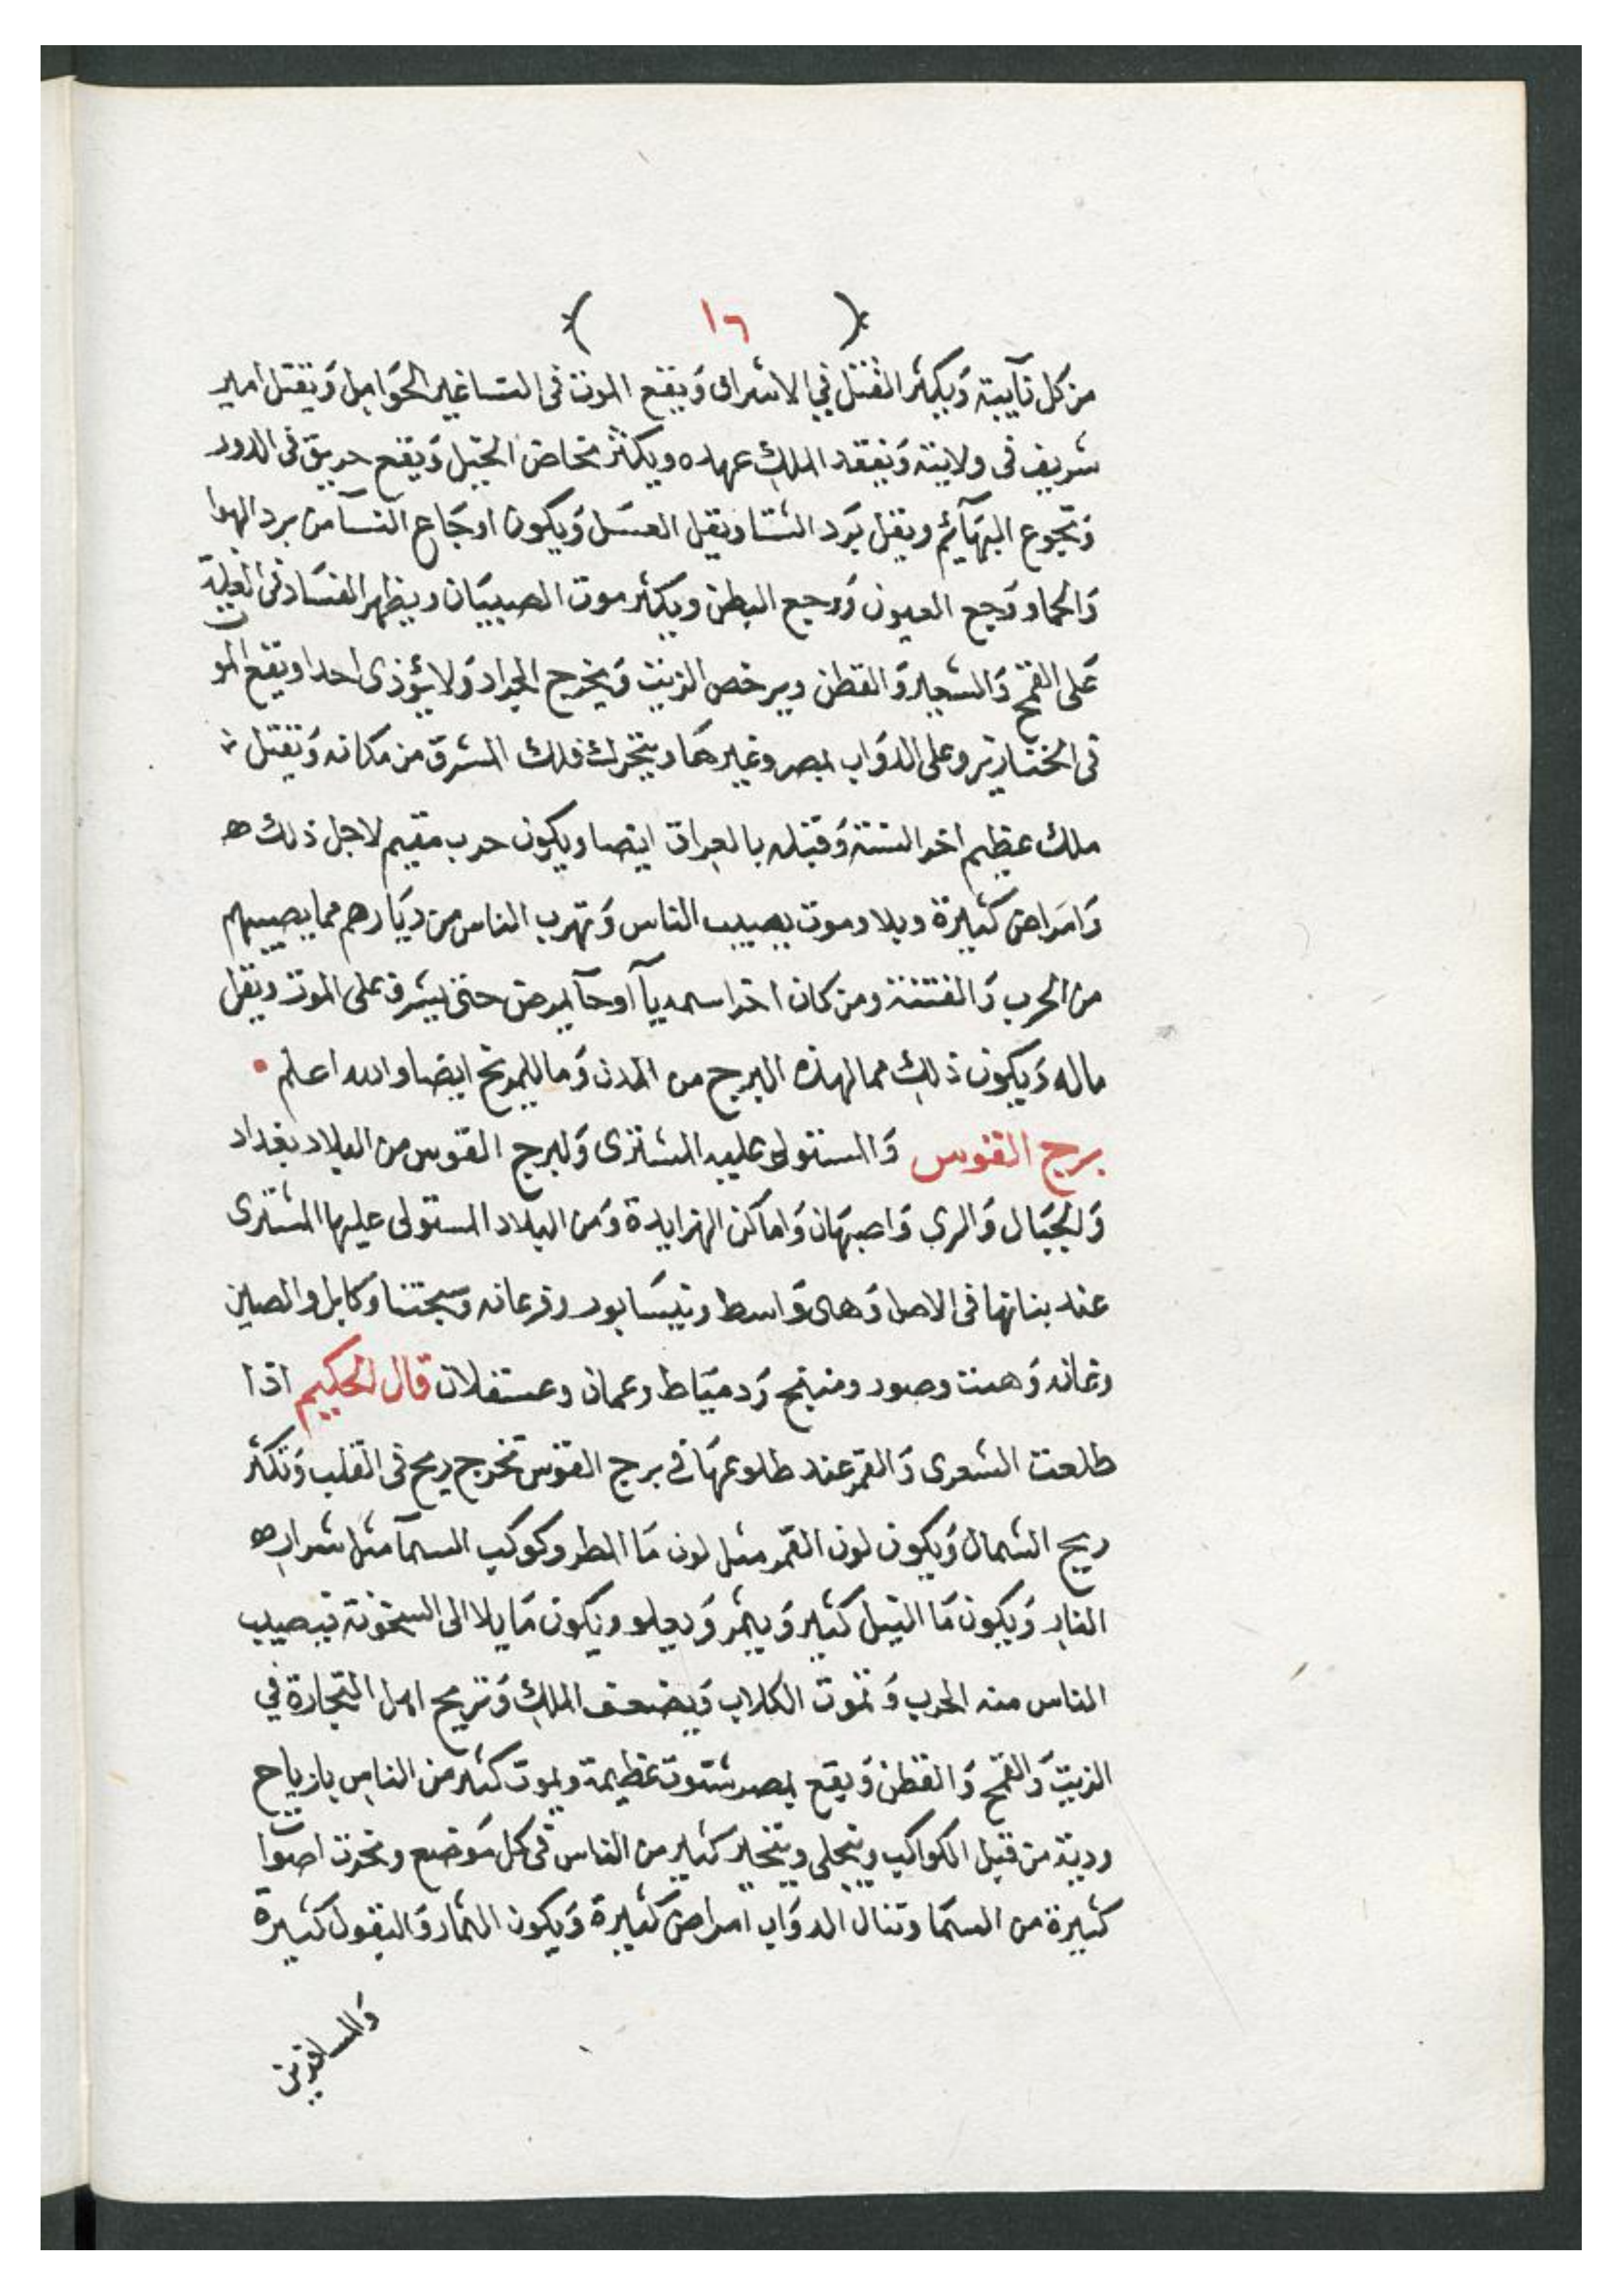 ١٦
من كل نآيبة وَيكثر القتل في الاشراف وَيقع الموت فى النسا غير الحوَامِل وَيقتل امير
شريف فى ولايته وَيفقد الملكِ عهده ويكثر مخاض الخيل وَيقع حريق فى الدور
وَتجوع البهَآئم ويقل بَرد الشتا ويقل العسَل وَيكون اوجَاع النسآ من برد الهوا
وَالحما ووَجع العيون وَوجع البطن ويكثر موت الصبيَان ويظهر الفسَاد فى الغلة
عَلى القمح وَالشعير وَالقطن ويرخص الزيت وَيخرج الجراد وَلا يؤذى احدا ويقع المو
ت فى وعلى الدوَاب بمصر وغيرهَا ويتحرك فلك المشرق من مكانه وَيقتل
ملك عظيم اخر السنة وَقتله بالعِراق ايضا ويكون حرب مقيم لاجل ذلك
وَامرَاض كثيرة وبلا وموت يصيب الناس وَتهرب الناس من ديَارهم مما يصيبهم
من الحرب وَالفتنة ومن كان اخر اسمه يآ اوحآ يمرض حتى يشرف على الموت ويقل
ماله وَيكون ذلِك مما لهذه البرج من المدن وَما للمريخ ايضا والله اعلم
برج القوس وَالمستولى عليه المشترى وَلبرج القوس من البلاد بغداد
وَالجبَال وَالرى وَاصبهَان وَاماكن وَمن البلاد المستولى عليها المشترى
عند بنائها فى الاصل وَهى وَاسط ونيسَابور وفرغانه وَسجتنا وَكابل والصين
وغانه وَهيت وصور ومنبج وَدميَاط وعمان وعسقلان قال الحكيم اذا
طلعت الشعرى وَالقمر عند طلوعهَا في برج القوس تخرج ريح فى القلب وَتكثر
ريح الشمال وَيكون لون القمر مثل لون مَا المطر وكوكب السمآ مثل شرارِ
النارِ وَيكون مَا النيل كثير وَيثمر وَيعلو ويكون مايلا الى السخونة فيصيب
الناس منه الحرب وَتموت الكلاب وَيضعف الملكِ وَتربح اهل التجارة في
الزيت وَالقمح وَالقطن وَيقع بمصر شتوت عظيمة ويموت كثير من الناس بازياح
ردية من قبل الكواكب ويتجلى ويتحير كثير من الناس فى كل مَوضع وتحدث اصوات
كثيرة من السمَا وتنال الدوَاب امراض كثيرة وَيكون الثمار وَالبقول كثيرة
وَالمسافرين